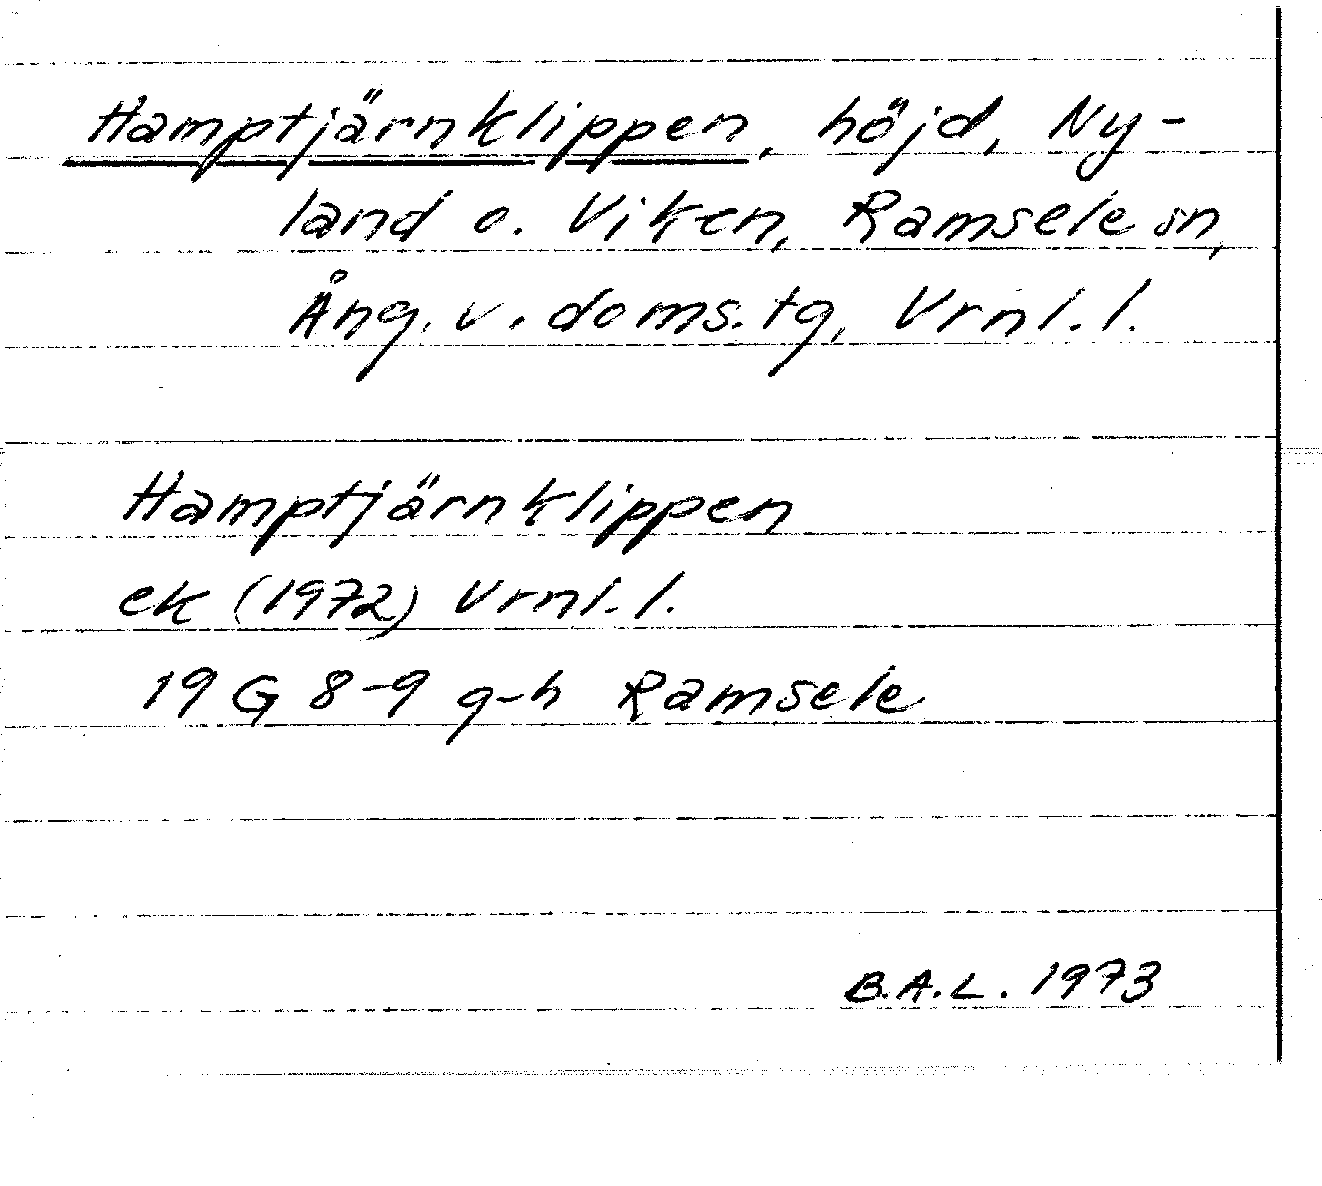 Hamptjärnklippen, höjd, Ny-
land o. Viken, Ramsele sn,
Ång. v. doms. tg, Vrnl. l.
Hamptjärnklippen
ek (1972) Vrnl. l.
19 G 8-9 g-h Ramsele
B.A.L. 1973